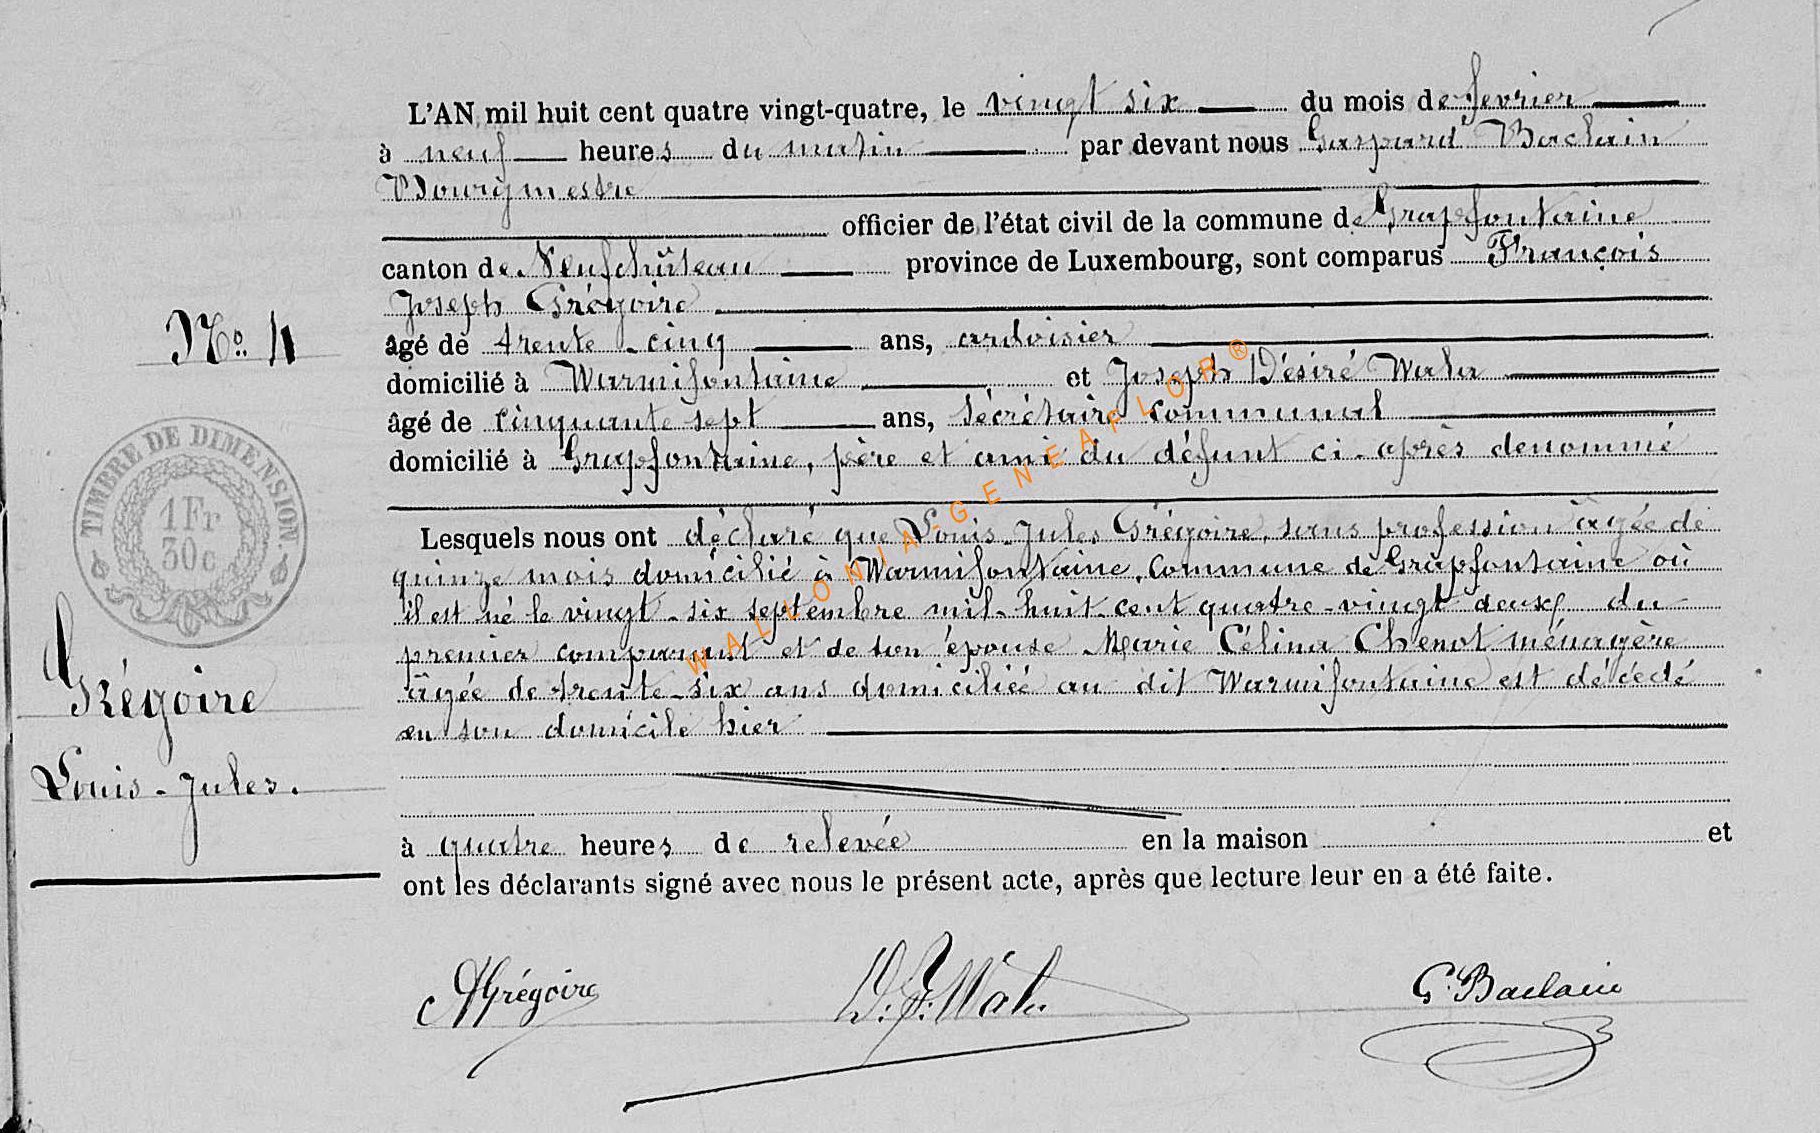 L'AN mil huit cent quatre vingt-quatre, le vingt six du mois de fevrier
à neuf heures du matin par devant nous Gaspard Baclain
Bourgmestre
officier de l'état civil de la commune de Grapfontaine
canton de Neufchâteau province de Luxembourg, sont comparus François
Joseph Grégoire
âgé de trente-cinq ans, ardoisier
domicilié à Warmifontaine et Joseph Désiré
âgé de cinquante sept ans, sécrétaire communal
domicilié à Grapfontaine, père et ami du défunt ci-après denommé
Lesquels nous ont déclaré que Louis-Jules Grégoire, sans profession âgée de
quinze mois domicilié à Warmifontaine, Commune de Grapfontaine où
il est né le vingt-six septembre mil-huit-cent quatre-vingt deux, du
premier comparant et de son épouse Marie Célina Chenot ménagère
âgée de trente-six ans domiciliée au dit Warmifontaine est décédé
en son domicile hier
à quatre heures de relevée en la maison et
ont les déclarants signé avec nous le présent acte, après que lecture leur en a été faite.
No. 4
TIMBRE DE DIMENSION.
1 Fr
30 c
Grégoire
Louis-Jules.
Grégoire
G. Baclain
WALLONIA-GENEAFLOR®